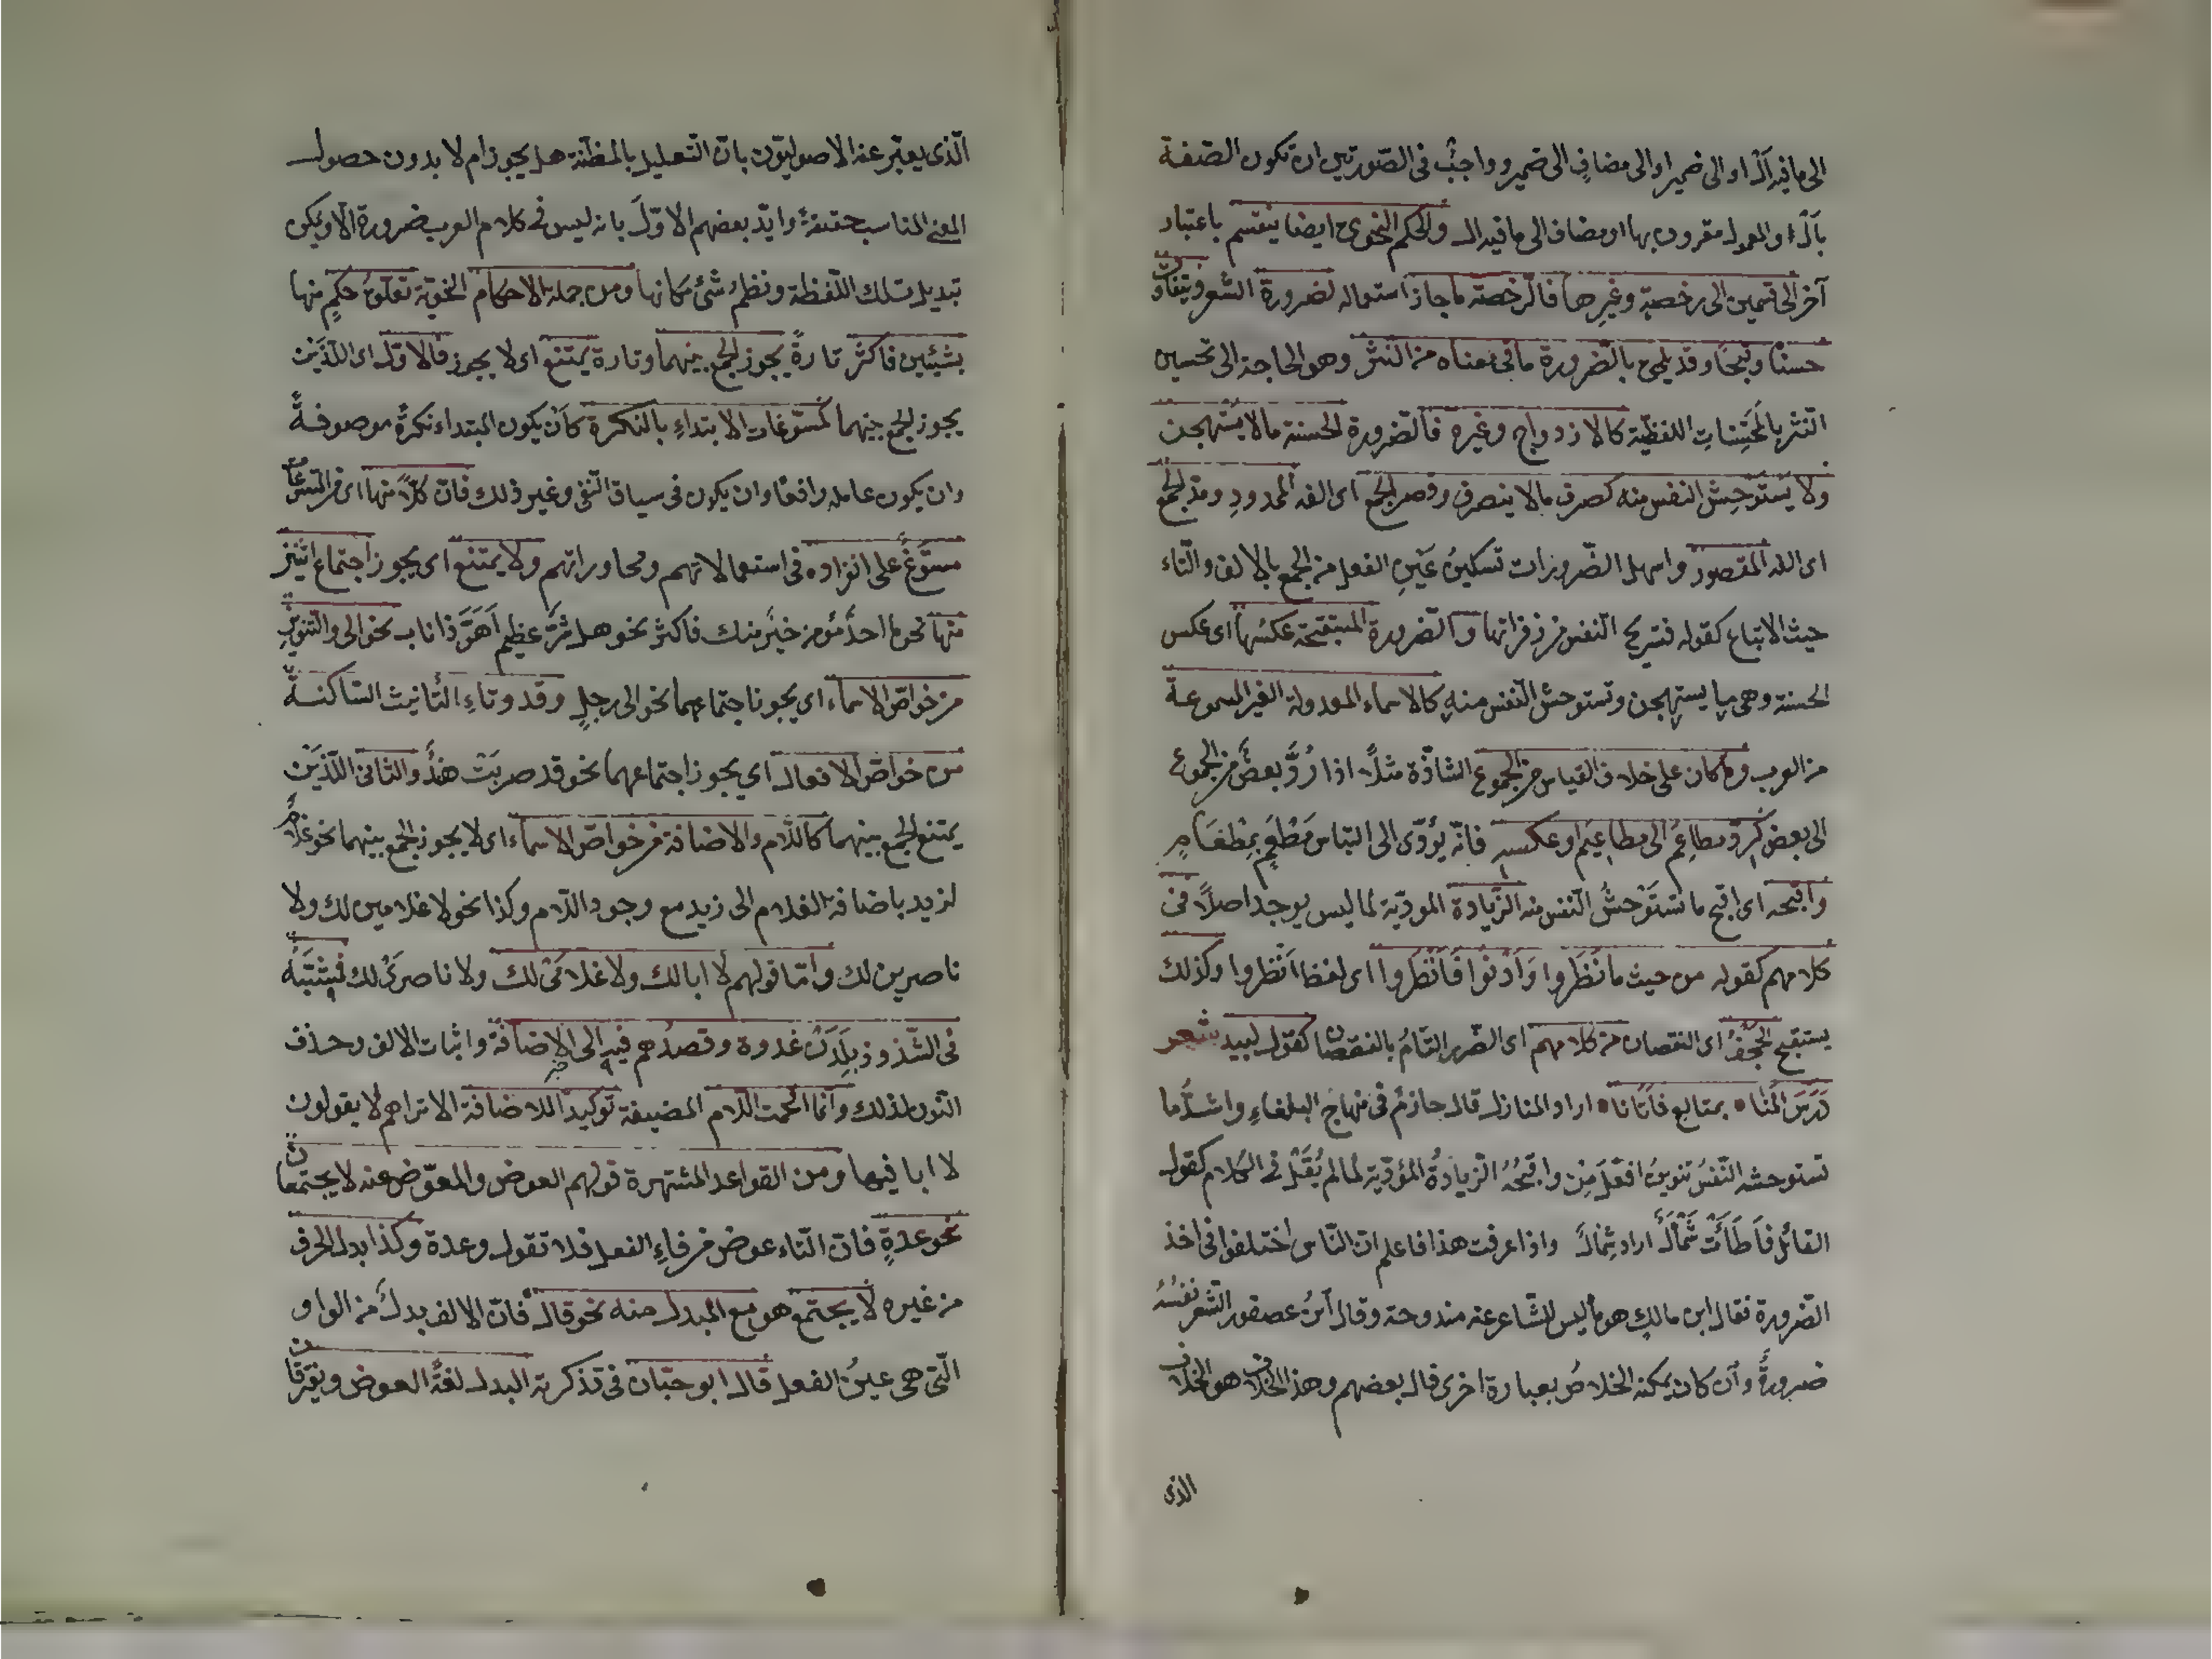 الى ما فيه اَلْ او الى ضمير او الى مضافٍ الى ضمير وواجبٌ فى الصّورتين ان تكون الصّفة
بآلْ او المعمول مقرون بها او مضاف الى ما فيه ال والحكم النحوى ايضا ينقسم باعتبار
آخر الى قسمين الى رخصةٍ وغيرها فالرّخصة ما جاز استعماله لضرورة الشعر ويتفاوت
حسنًا وقبحًا وقد يلحق بالضّرورة ما فى معناه من النثر وهو الحاجة الى تحسين
النثر بالمحسّنات اللفظيّة كالازدواج وغيره فالضّرورة الحسنة ما لا يستهجن
ولا يستوحش النفس منه كصرف ما لا ينصرف وقصر الجمع اى الفه الممدود ومدّ الجمع
اى الفه المقصور واسهل الضّرورات تسكينُ عَيْنِ الفعل من الجمع بالالف والتاء
حيث الاتباع كقوله فتستريح النفس من زفراتها والضّرورة المستقبحة عكسها اى عكس
الحسنة وهى ما يستهجن وتستوحش النفس منه كالاسماء المعدولة الغير المسموعة
من العرب وما كان على خلاف القياس من الجموع الشاذّة مثلاً اذا رُدَّ بعضٌ من الجموع
الى بعض كردّ مطاعم الى مطاعيم او عكسه فانّه يؤدّى الى التباس مَطْعَمٍ بمِطْعَامٍ
واقبحه اى اقبح ما تستَوْحشُ النّفس منه الزّيادة المودّية لما ليس يوجد اصلاً فى
كلامهم كقوله من حيث ما نَظَروا وَاَدْنُوا فَاَنْظُروا اى لفظ اَنْظروا وكذلك
يستقبح اى النقصان من كلامهم اى الضّرر التامُ بالنقصان كقول لبيد شعر
دَرَسَ المَنا ٥ بمتالع فأبانا ٥ اراد المنازل قال حازم فى منهاج البلغاءِ واشدُّ ما
تستوحشه النّفسُ تنوينُ افعَلَ مِنْ واقبحُهُ الزيادةُ المؤدّية لما لم يُقَبلْ فى الكلام كقول
القائل فَاَطَأَتْ شَمْأَلً اراد شمالً واذا عرفت هذا فاعلم انّ النّاس اختلفوا فى اخذ
الضّرورة فقال ابن مالك هو ما ليس للشّاعر عنه مندوحة وقال ابنُ عصفور الشعر نفسُهُ
ضرورةٌ وان كان يمكنه الخلاصُ بعبارة اخرى قال بعضهم وهذا الخلاف هو الخلاف
الذى
الّذى يعبّر عنه الاصوليّون بانّ التّعليل بالمظنّة هل يجوز ام لا بدون حصول
المعنى المناسب حقيقةً وايّد بعضهم الاوّلَ بانه ليس فى كلام العرب ضرورة الّا ويمكن
تبديل تلك اللّفظة ونظمُ شئ مكانها ومن جملة الاحكام النحويّة تعلّقُ حكمٍ منها
بشيئين فاكثر تارةً يجوز الجمع بينهما وتارة يمتنع اى لا يجوز فالاوّل اى اللّذَين
يجوز الجمع بينهما كمسوّغات الابتداءِ بالنكرة كاَنْ يكون المبتداء نكرةً موصوفةً
وان يكون عامله رافعًا وان يكون فى سياق النّفى وغير ذلك فانّ كلاًّ منها اى من المسوّغات
مسَوّغٌ على انفراده فى استعمالاتهم ومحاوراتهم ولا يمتنع اى يجوز اجتماع اثنين
منها نحو ما احدٌ مؤمن خيرٌ منك فاكثر نحو هل شرٌّ عظيم اَهَرَّ ذا ناب نحو الى والتّنوين
من خواصّ الاسماء اى يجوز اجتماعهما نحو الى رجلٍ وقد وتاءِ التّأنيث الساكنة
من خواصّ الافعال اى يجوز اجتماعهما نحو قد ضربَتْ هندٌ والثانى اللّذَيْن
يمتنع الجمع بينهما كاللّام والاضافة من خواصّ الاسماء اى لا يجوز الجمع بينهما نحو غلامٌ
لزيد باضافة الغلام الى زيد مع وجود اللّام وكذا نحو لا غلامين لك ولا
ناصرين لك وامّا قولهم لا ابا لك ولا غلامَىْ لك ولا ناصرَىْ لك
فى الشّذوذ بلَدُنْ غدوة وقصدُهم فيه الى الاضافة واثبات الالف وحذف
النّون لذلك وانّما اقحمت اللّام المضيفة توكيدًا للاضافة الا تراهم لا يقولون
لا ابا فيها ومن القواعد المشتهرة قولهم العوض والمعوّض عنه لا يجتمعان
نحو عدةٍ فانّ التّاء عوض من فاءِ الفعل فلا تقول وعدة وكذا بدل الحرف
من غيره لا يجتمع هو مع المبدل منه نحو قال فانّ الالف بدلٌ من الواو
الّتى هى عينُ الفعل قال ابو حيّان فى تذكرته البدل لغةً العوض ويفترقان